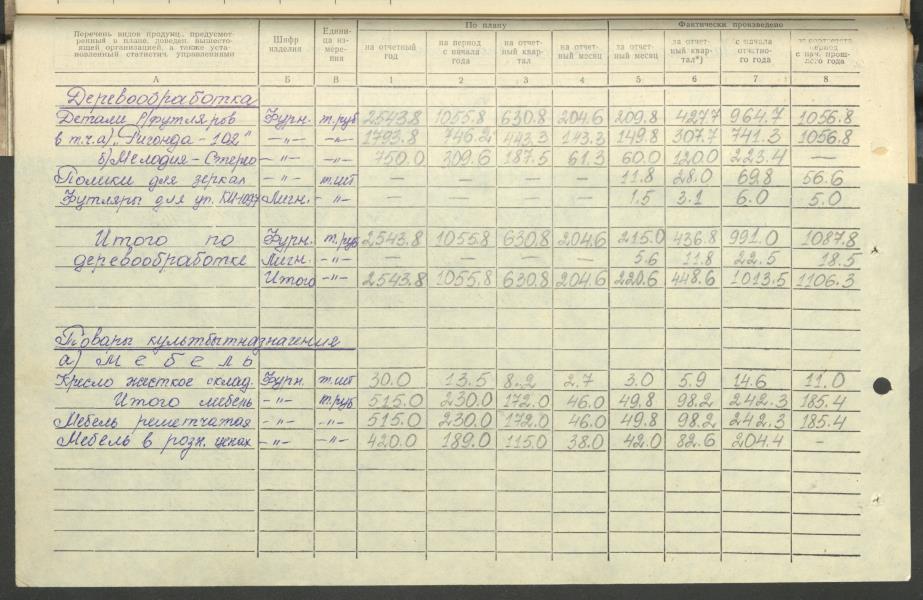 Перечень видов продукц., предусмотренный в плане, доведен. вышестоящей организацией, а также установленный статистич. управлениями | Шифр изделия | Единица измерения | По плану | Фактически произведено
на отчетный год | на период с начала года | на отчетный квартал | на отчетный месяц | за отчетный месяц | за отчетный квартал*) | с начала отчетного года | за соответств. период с нач. прошлого года
А | Б | В | 1 | 2 | 3 | 4 | 5 | 6 | 7 | 8
Деревообработка
Детали д/футляров | Фурн. | т.руб | 2543.8 | 1055.8 | 630.8 | 204.6 | 209.8 | 427.7 | 964.7 | 1056.8
в т.ч. а) „Ригонда - 102" | -"- | -"- | 1793.8 | 746.2 | 443.3 | 143.3 | 149.8 | 307.7 | 741.3 | 1056.8
б) Мелодия - Стерео | -"- | -"- | 750.0 | 309.6 | 187.5 | 61.3 | 60.0 | 120.0 | 223.4 | —
Полики для зеркал | -"- | т.шт | — | — | — | — | 11.8 | 28.0 | 69.8 | 56.6
Футляры для уп. КИ-1097 | Лигн. | -"- | — | — | — | — | 1.5 | 3.1 | 6.0 | 5.0
Итого по | Фурн. | т.руб | 2543.8 | 1055.8 | 630.8 | 204.6 | 215.0 | 436.8 | 991.0 | 1087.8
деревообработке | Лигн. | -"- | 5.6 | 11.8 | 22.5 | 18.5
Итого | -"- | 2543.8 | 1055.8 | 630.8 | 204.6 | 220.6 | 448.6 | 1013.5 | 1106.3
Товары культбытназначения
а) Мебель
Кресло жесткое склад. | Фурн. | т.шт | 30.0 | 13.5 | 8.2 | 2.7 | 3.0 | 5.9 | 14.6 | 11.0
Итого мебель | -"- | т.руб | 515.0 | 230.0 | 172.0 | 46.0 | 49.8 | 98.2 | 242.3 | 185.4
Мебель решетчатая | -"- | -"- | 515.0 | 230.0 | 172.0 | 46.0 | 49.8 | 98.2 | 242.3 | 185.4
Мебель в розн. ценах | -"- | -"- | 420.0 | 189.0 | 115.0 | 38.0 | 42.0 | 82.6 | 204.4 | -